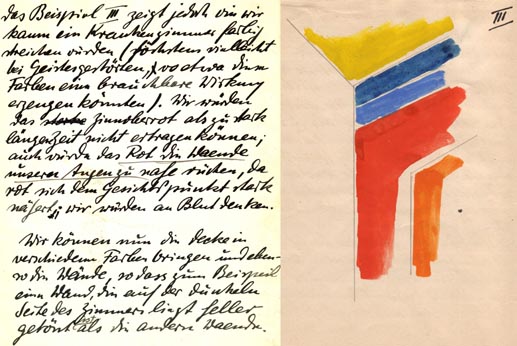 das Beispiel III zeigt jedoch wie wir
kaum ein Krankenzimmer farbig
streichen würden (höchstens vielleicht
bei Geistergestörten, wo etwa diese
Farben eine brauchbare Wirkung
erzeugen könnten). Wir würden
das starke Zinnoberrot als zu stark
längerzeit nicht ertragen können;
auch würde das Rot die Waende
unseren Augen zu nahe rücken, da
rot sich dem Gesichtspunkt stark
nähert; wir würden an Blut denken.
Wir können nun die Decke in
verschiedene Farben bringen und eben-
so die Wände, so dass zum Beispiel
eine Wand, die auf der dunkeln
Seite des Zimmers liegt heller
getönt ist als die andern Waende.
III